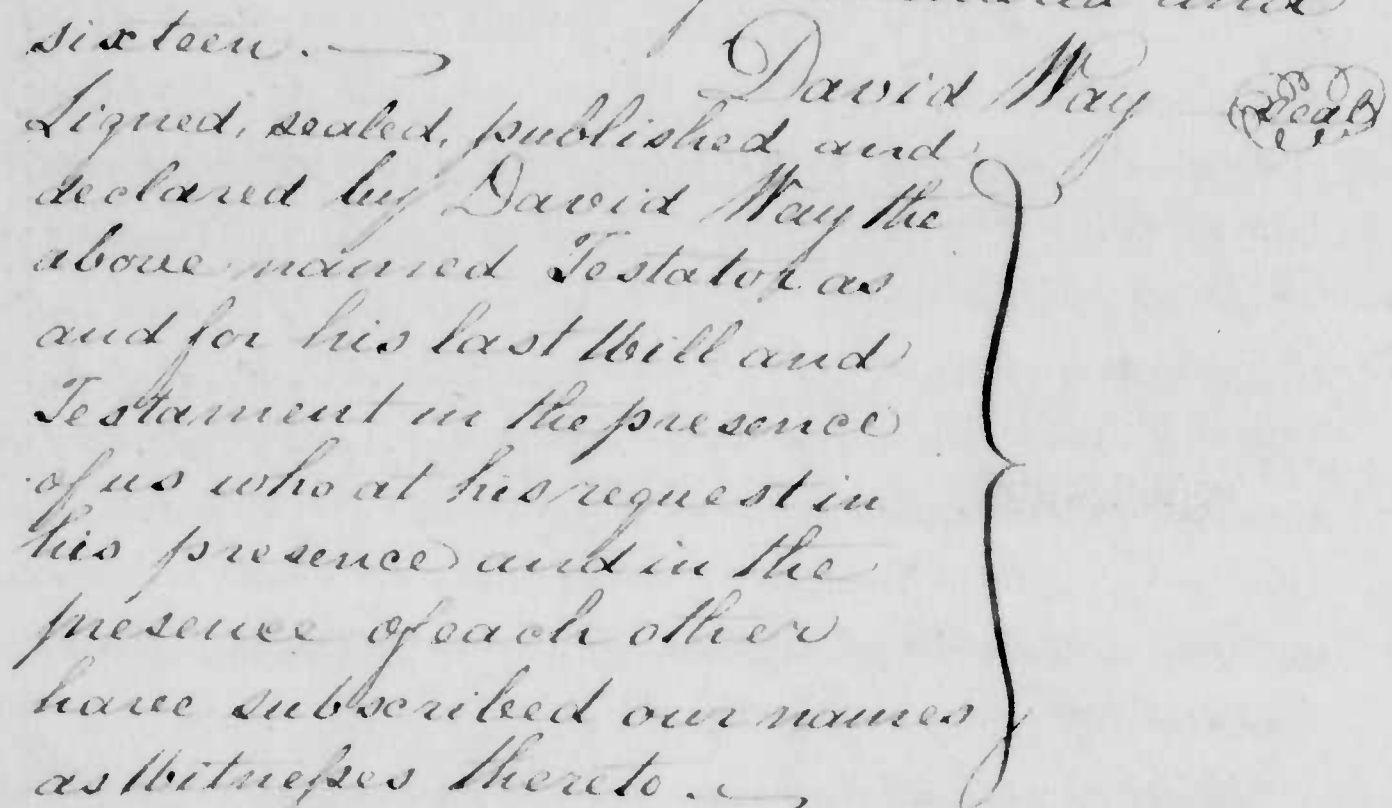 and
sixteen.
David Way Seal
Signed, sealed, published and
declared by David Way the
above named Testator as
and for his last Will and
Testament in the presence
of us who at his request in
his presence and in the
presence of each other
have subscribed our names
as Witneſses thereto.